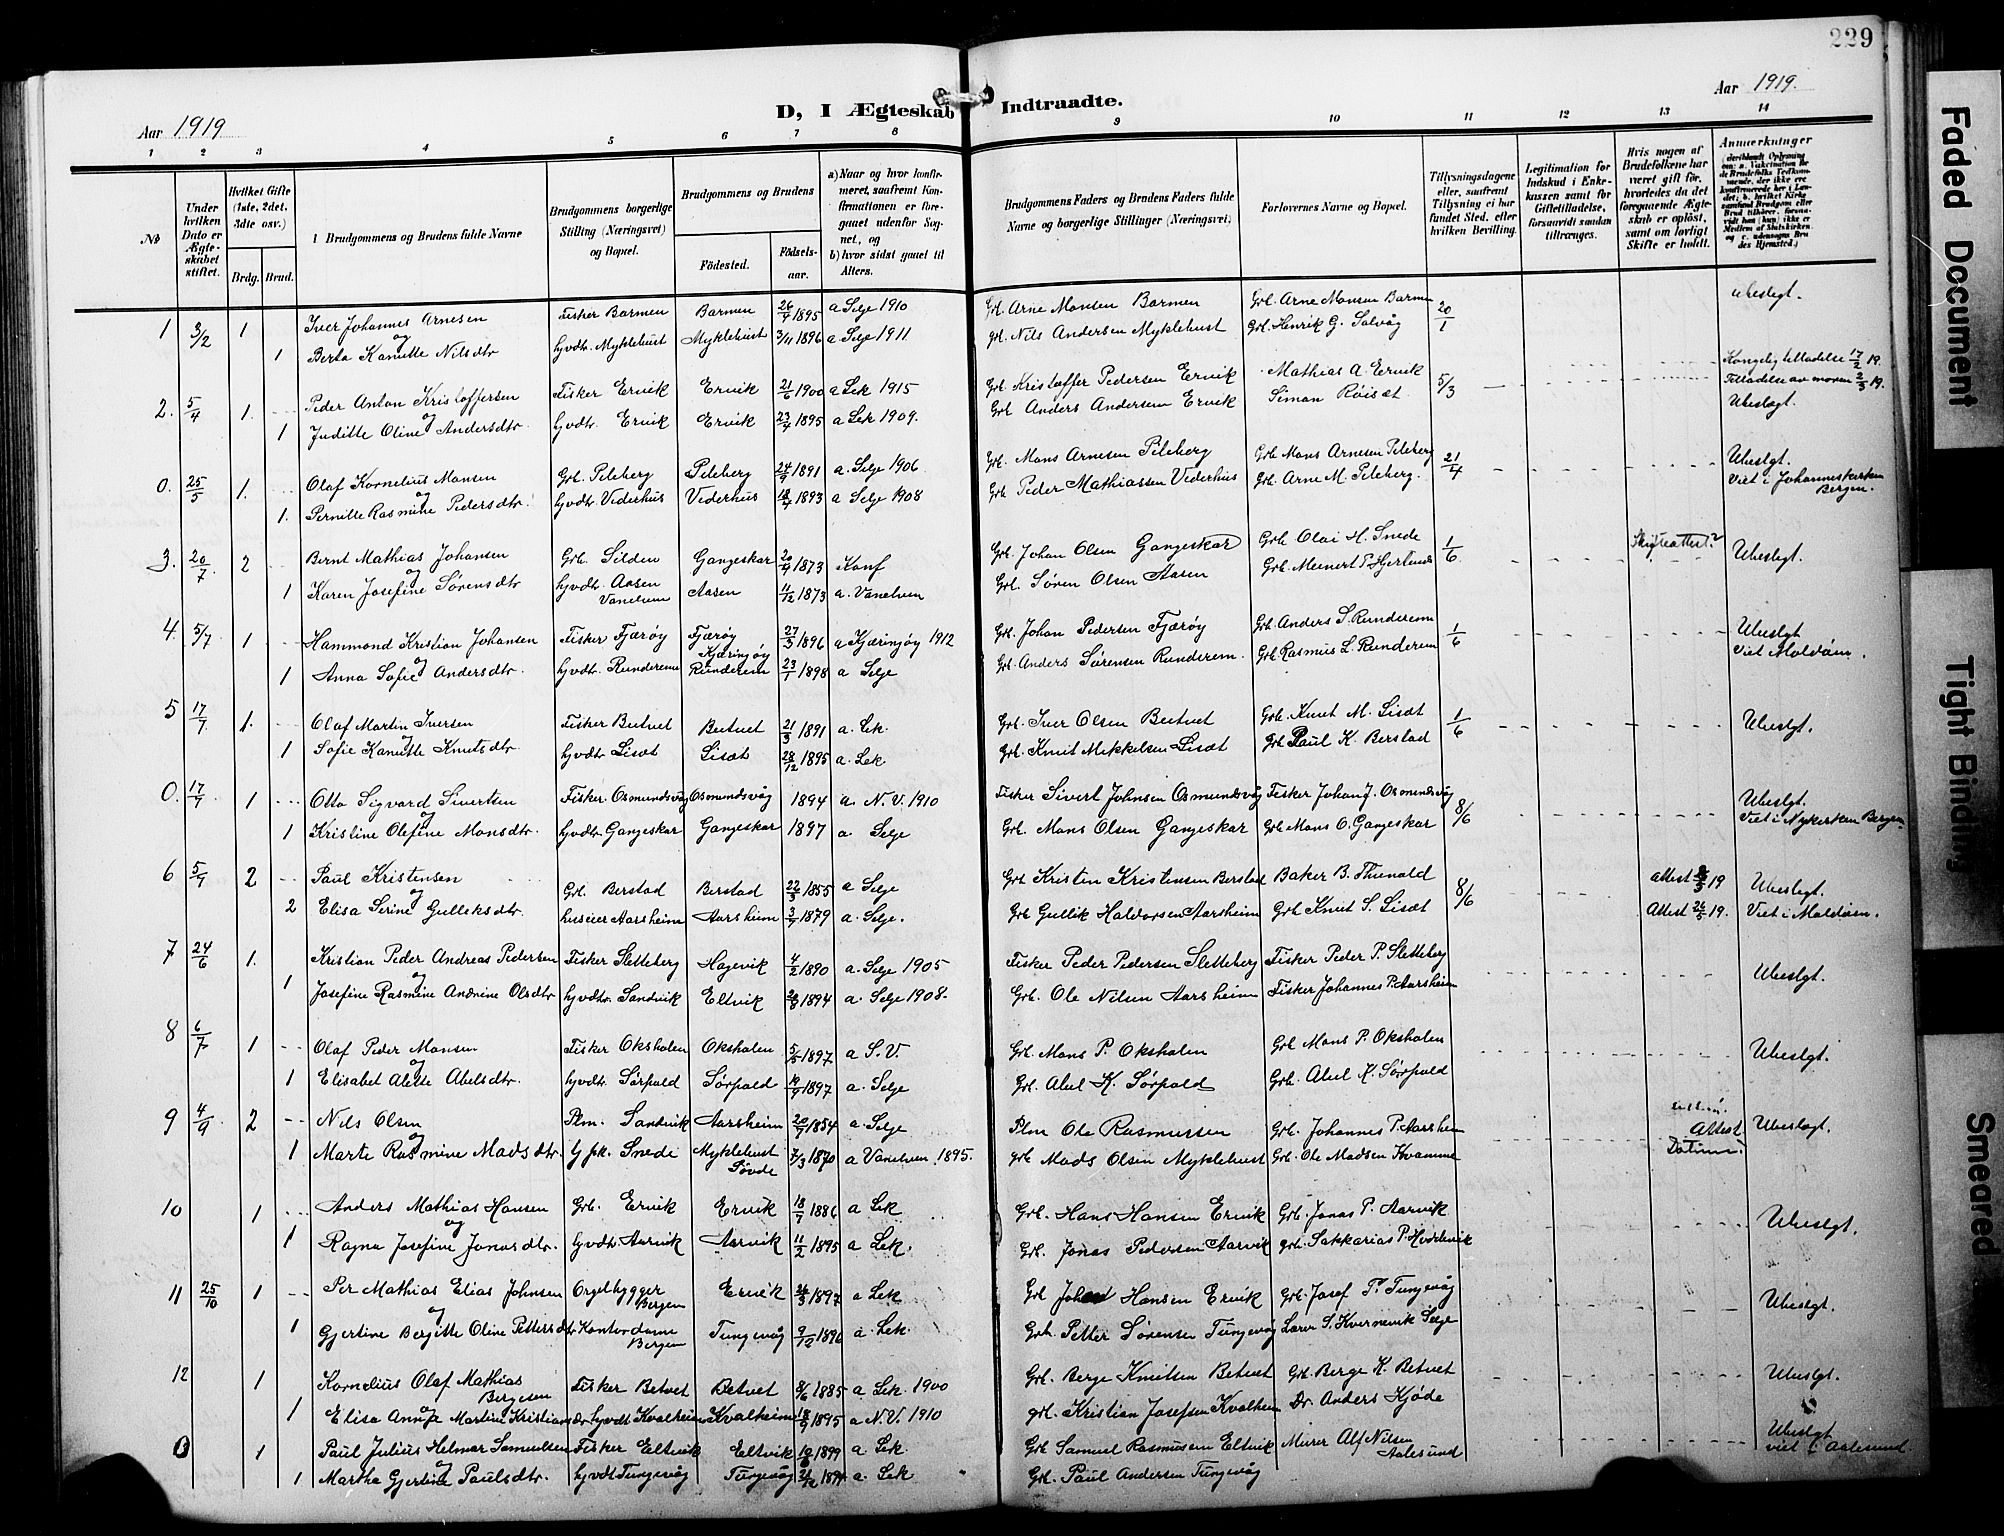 229
Aar 1919
D, I Ægteskab Indtraadte.
Aar 1919.
1 2 3 4 5 6 7 8 9 10 11 12 13 14
No
Under hvilken Dato er Ægteskabet stiftet.
Hvilket Gifte (1ste, 2det, 3dte osv.)
Brdg. Brud.
Brudgommens og Brudens fulde Navne
Brudgommens borgerlige Stilling (Næringsvei) og Bopæl.
Brudgommens og Brudens
Fødested. Fødselsaar.
a) Naar og hvor konfirmeret, saafremt Konfirmationen er foregaaet udenfor Sognet, og
b) hvor sidst gaaet til Alters.
Brudgommens Faders og Brudens Faders fulde Navne og borgerlige Stillinger (Næringsvei)
Forlovernes Navne og Bopæl.
Tillysningsdagene eller, saafremt Tillysning ei har fundet Sted, efter hvilken Bevilling.
Legitimation for Indskud i Enkekassen samt for Giftetilladelse, forsaavidt saadan tiltrænges.
Hvis nogen af Brudefolkene har været gift før, hvorledes da det foregaaende Ægteskab er opløst, samt om lovligt Skifte er holdt.
Anmærkninger
1 3/2 1 Iver Johannes Arnesen Fisker Barmen Barmen 1895 a Selje 1910 Grb. Arne Monsen Barmen Grb. Arne Monsen Barmen 20/1 Ubeslegt.
og
1 Berta Kanutte Nilsdtr hjvdtr. Myklebust Myklebust 3/11 1896 a Selje 1911 grb. Nils Andersen Myklebust Grb. Henrik G. Salvåg
Kongelig tilladelse 17/2 19.
2. 5/4 1. Peder Anton Kristoffersen Fisker Ervik Ervik 21/6 1900 a Lek 1915 Grb Kristoffer Pedersen Ervik Mathias A. Ervik 5/3 Tilladelse av moren 2/3 19.
og
1 Juditte Oline Andersdtr hjvdtr. Ervik Ervik 23/4 1895 a Lek 1909. Grb Anders Andersen Ervik Simon Røisæt. Ubeslægt.
0. 25/5 1. Olaf Kornelius Monsen Grb. Pileberg Pileberg 1891 a. Selje 1906 Grb. Mons Arnesen Pileberg Grb Mons Arnesen Pileberg 21/4 Ubeslgt.
og
1. Pernille Rasmine Pedersdtr. hjvdtr Vederhus Vederhus 1893 a Selje 1908 Grb Peder Mathiassen Vederhus Grb. Arne M. Pileberg. Viet i Johanneskirken Bergen.
3. 20/7 2 Bernt Mathias Johansen Grb. Silden Gangeskar 1873 Konf Grb. Johan Olsen Gangeskar Grb Olai H. Snede 1/6 Skifteattest? Ubeslgt.
og
1 Karen Josefine Sørensdtr hjvdtr Aasen Vanelven Aasen 11/12 1873 a. Vanelven Grb. Søren Olsen Aasen Grb. Meinert P. Hjertenes
4. 5/7 1 Hammond Kristian Johansen Fisker Fjærøy Fjærøy Kjæringøy 27/3 1896 a Kjæringøy 1912 Grb. Johan Pedersen Fjærøy Grb. Anders S. Runderem 1/6 Ubeslgt
og
1 Anna Sofie Andersdtr. hjvdtr. Runderem Runderem 23/1 1898 a Selje Grb. Anders Sørensen Runderem. Grb. Rasmus L. Runderem Viet Moldøen.
5 17/7 1. Olaf Martin Iversen Fisker Beitvet Beitvet 21/3 1891 a. Lek. Grb. Iver Olsen Beitvet Grb. Knut M. Lisæt 1/6 Ubeslgt.
og
1 Sofie Kanutte Knutsdtr hjvdtr Lisæt Lisæt 28/12 1895 a. Lek Grb. Knut Mekkelsen Lisæt Grb Paul K. Berstad
0. 17/7 1 Otto Sigvard Sivertsen Fisker. Osmundsvåg Osmundsvåg 1894 a. N. V. 1910 Fisker Sivert Johnsen Osmundsvåg Fisker Johan J. Osmundsvåg 8/6 Ubeslgt.
og
1 Kristine Olefine Monsdtr. hjvdtr Gangeskar Gangeskar 1897 a Selje Grb. Mons Olsen Gangeskar Grb Mons O. Gangeskar Viet i Nykirken Bergen
6 5/7 2 Paul Kristensen Grb. Berstad Berstad 22/3 1855 a Selje Grb Kristen Kristensen Berstad Baker B. Thunold 8/6 attest 19 Ubeslgt.
og
2 Elisa Serine Gulleksdtr. huseier Aarsheim Aarsheim 1879 a. Selje. Grb Gullik Halvorsen Aarsheim Grb Knut S. Lisæt Attest 26/5 19. Viet i Moldøen.
7 24/6 1. Kristian Peder Andreas Pedersen Fisker Sletteberg Hagevik 4/2 1890 a. Selje 1905 Fisker Peder Pedersen Sletteberg Fisker Peder P. Sletteberg Ubeslgt.
og
1 Josefine Rasmine Andrine Olsdtr hjvdtr. Sandvik Eltvik 1894 a. Selje 1908. Grb. Ole Nilsen Aarsheim Fisker Johannes P. Aarsheim
8 6/7 1 Olaf Peder Monsen Fisker Oksholen Oksholen 1897 a S. V. Grb. Mons P. Oksholen Grb Mons P. Oksholen Ubeslgt.
og
1 Elisabet Alette Abelsdtr. hjvdtr Sørpold Sørpold 1897 a. Selje Grb. Abel K. Sørpold Grb. Abel K. Sørpold
9 4/9 2 Nils Olsen Plm. Sandvik Aarsheim 1854 a. Selje Plm Ole Rasmussen Grb. Johannes P. Aarsheim Attest Ubeslægt.
og
1 Marte Rasmine Madsdtr. Snede Myklebust Søvde 7/3 1870 a Vanelven 1895. grb Mads Olsen Myklebust Grb. Ole Madsen Kvamme Datum?
10 1 Anders Mathias Hansen Grb. Ervik Ervik 18/7 1886 a Lek Grb. Hans Hansen Ervik Grb. Jonas P. Aarvik Ubeslgt.
og
1 Ragna Josefine Jonasdtr. hjvdtr Aarvik Aarvik 11/2 1895 a Lek. Grb. Jonas Pedersen Aarvik grb. Sakkarias P. Hoddevik
11 25/10 1 Per Mathias Elias Johnsen Orgelbygger Bergen Ervik 1897 a Lek Grb Hansen Ervik Grb. Josef P. Tungevåg Ubeslgt.
og
1 Gjertine Bergitte Oline Pettersdtr Kontordame Bergen Tungevåg 9/12 1896 a. Lek. Grb. Petter Sørensen Tungevåg Lærer S. Kvernevik Selje
12 1 Kornelius Olaf Mathias Bergesen Fisker Betvet Betvet 8/6 1885 a Lek. 1900 Grb. Berge Knutsen Betvet Grb. Berge K. Betvet Ubeslgt.
og
1 Elisa Anne Martine Kristiansdtr hjvdt Kvalheim Kvalheim 1895 a N. V. 1910 grb. Kristian Josefsen Kvalheim Dr. Anders Kjøde
1 Paul Julius Helmer Samuelsen Fisker Eltvik Eltvik 1899 a. Lek. Grb Samuel Rasmusen Eltvik Murer Alf Nilsen Aalesund Ubeslgt
og
1 Martha Gjertine Paulsdtr. hjvdt Tungevåg Tungevåg a. Lek Grb. Paul Andersen Tungevåg viet i Aalesund.
Faded Document
Tight Binding
Smeared